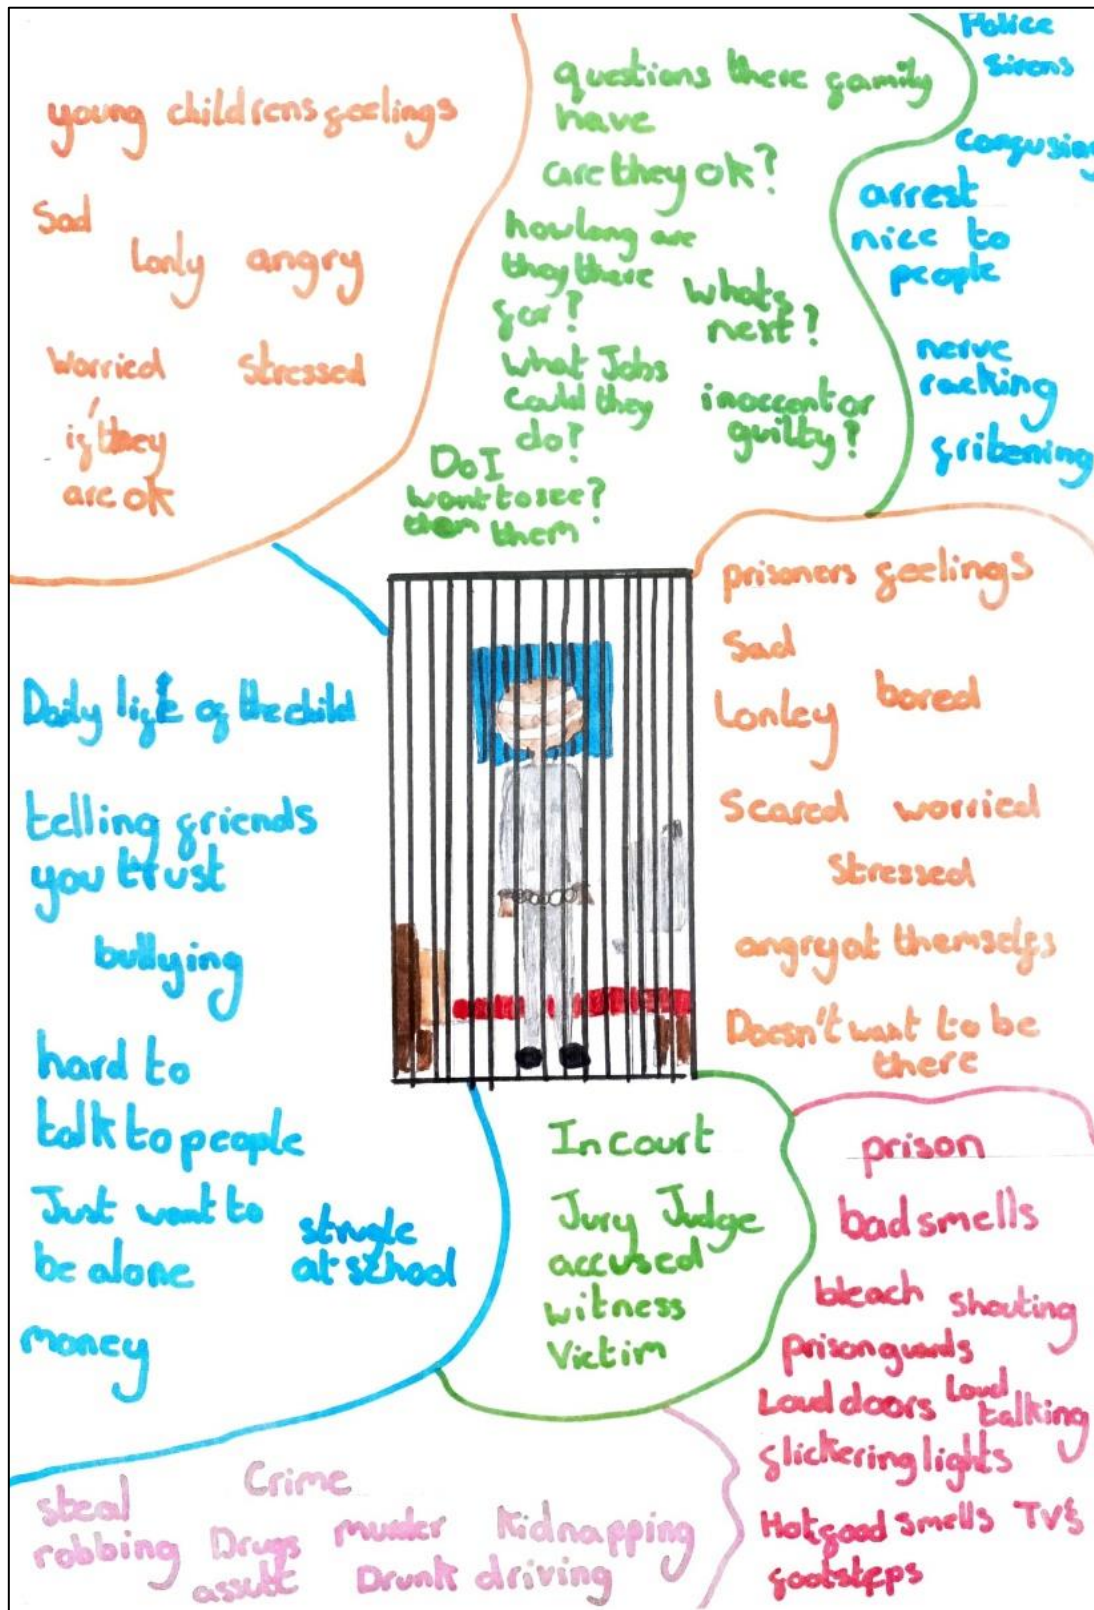 young childrens feelings
Sad
Lonly angry
Worried Stressed
if they
are ok
questions there family
have
are they ok?
how long are
they there
for?
whats
next?
what Jobs
Could they
do?
inoccent or
guilty?
Do I
want to see?
them them
Police
sirens
confusing
arrest
nice to
people
nerve
racking
fritening
prisoners feelings
Sad
Lonley bored
Scared worried
Stressed
angry at themselfs
Doesn't want to be
there
Daily life of the child
telling friends
you trust
bullying
hard to
talk to people
Just want to
be alone
strugle
at school
money
In court
Jury Judge
accused
witness
Victim
prison
bad smells
bleach shouting
prison guards
Loud doors Loud
talking
flickering lights
Hot food smells TVs
footsteps
Crime
steal
robbing Drugs murder Kidnapping
assult Drunk driving